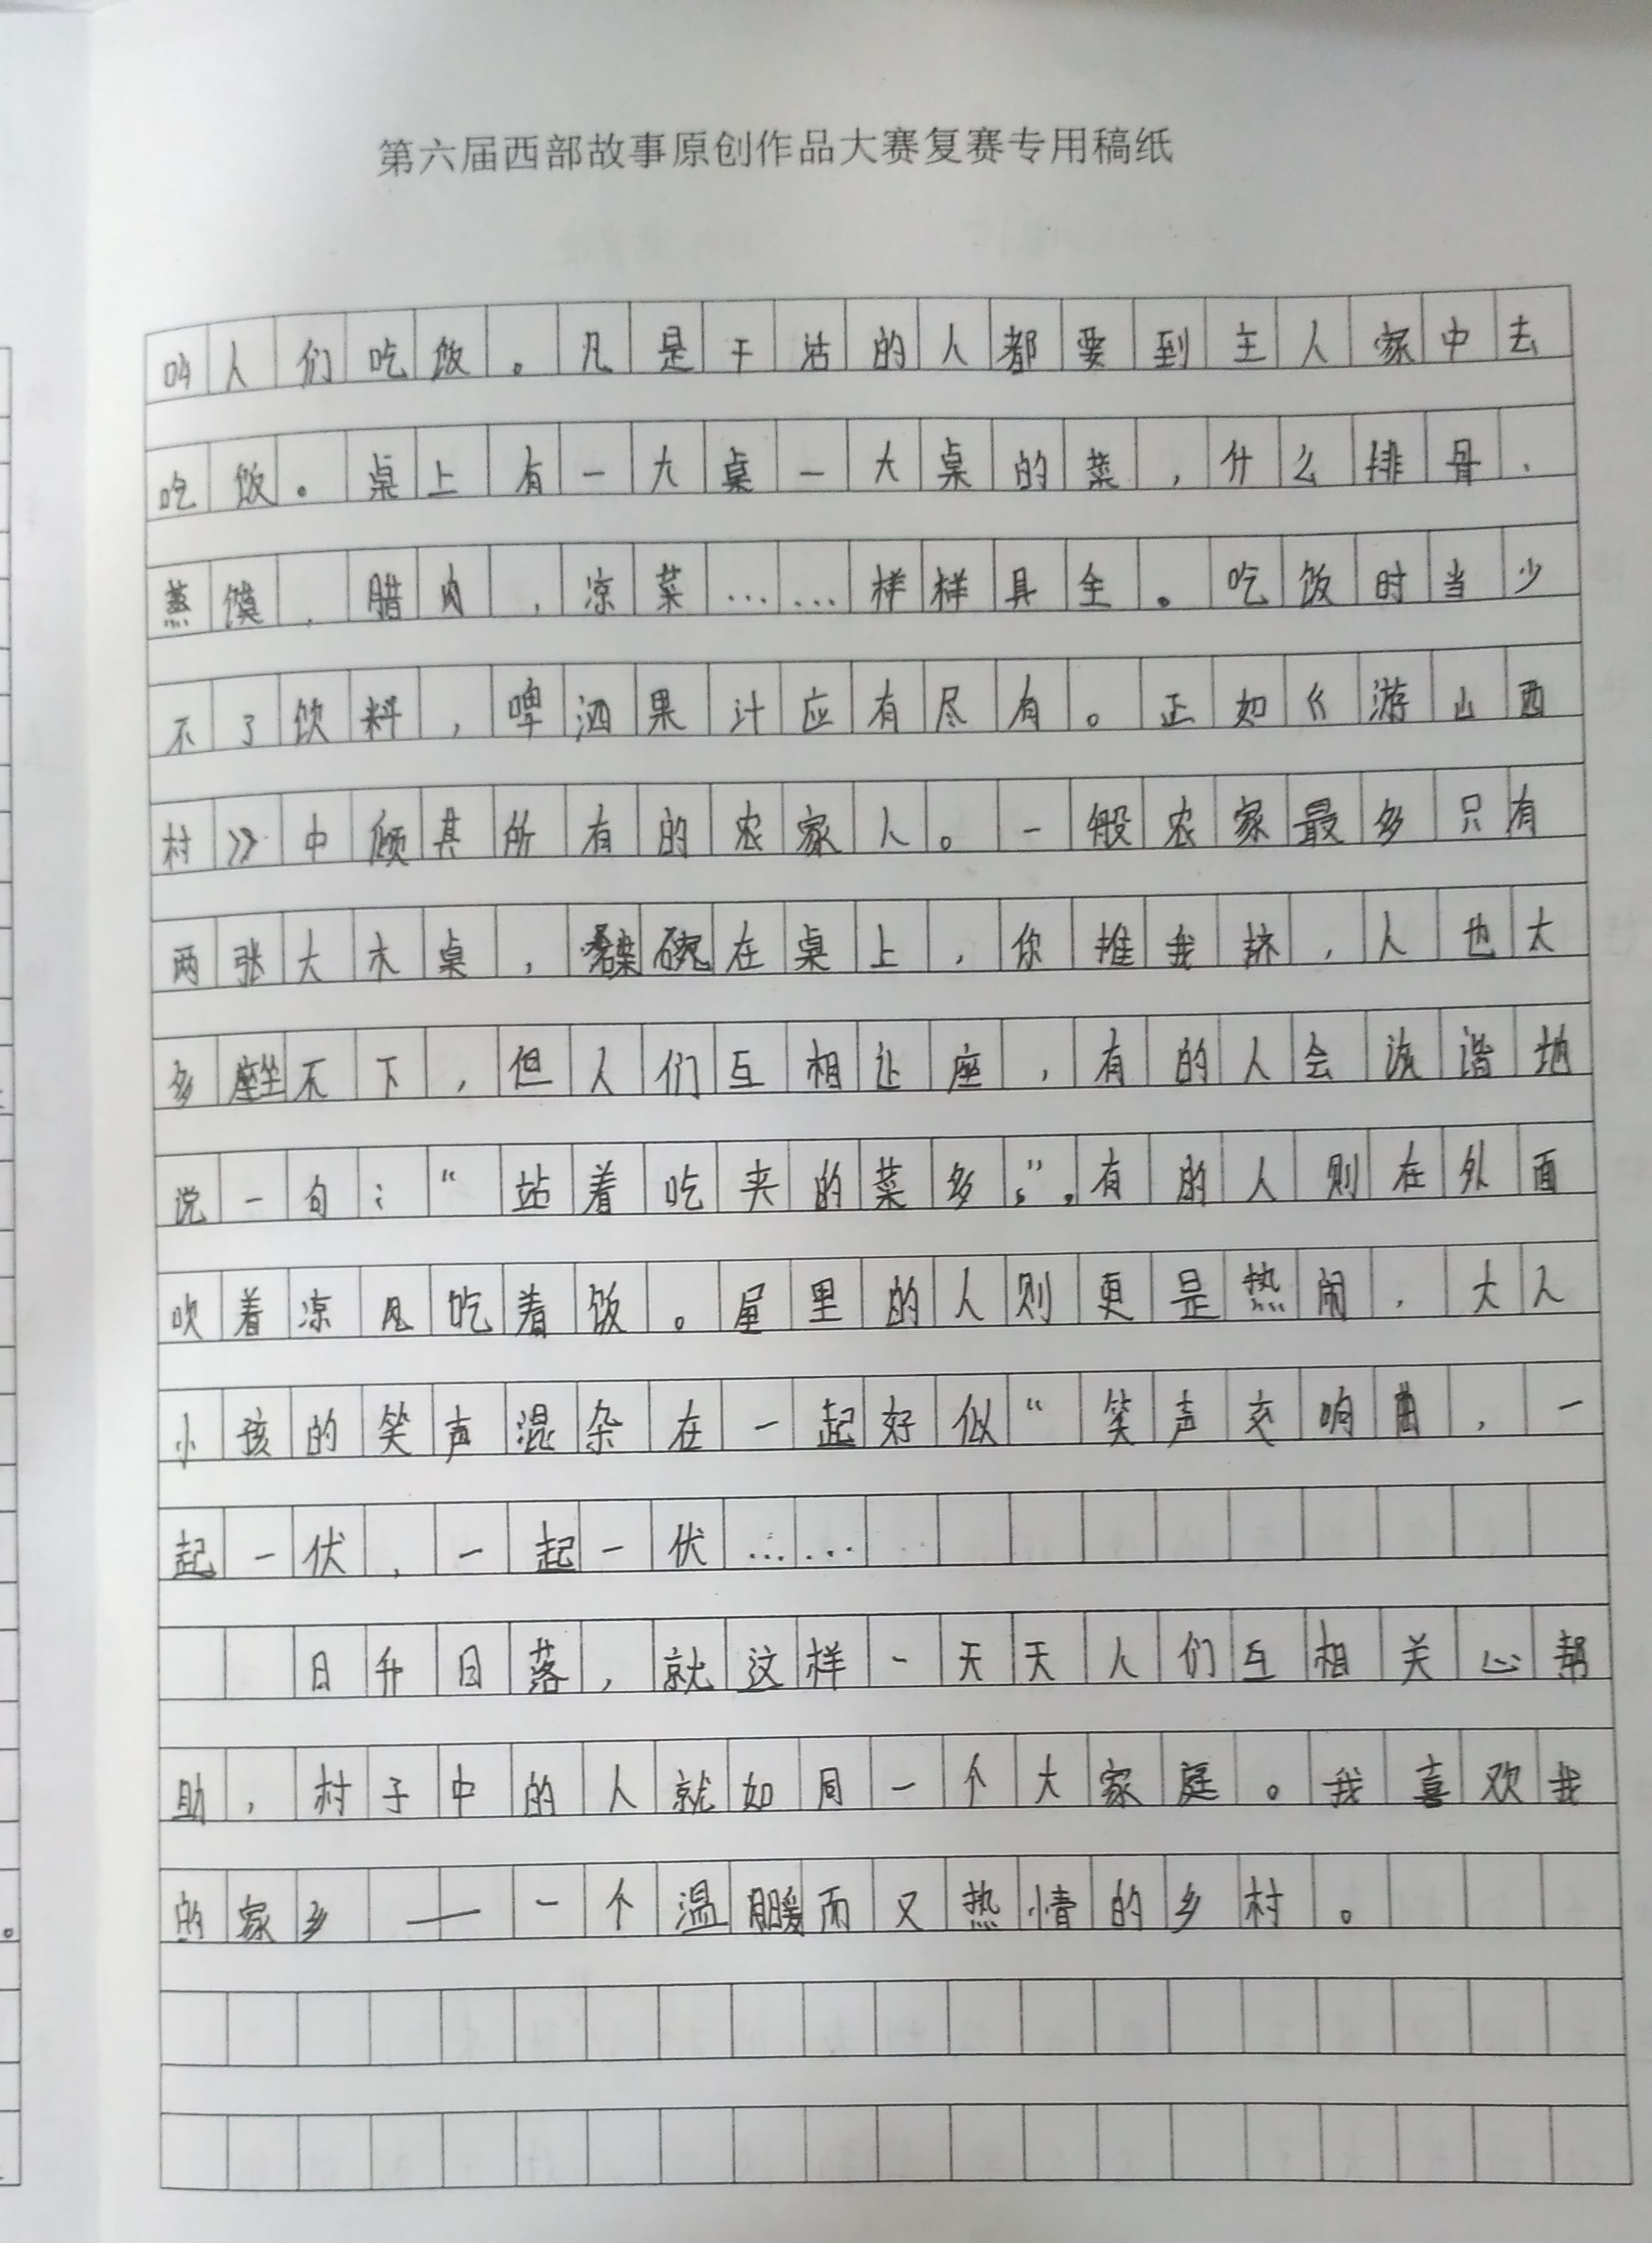 第六届西部故事原创作品大赛复赛专用稿纸
叫人们吃饭。凡是干活的人都要到主人家中去
吃饭。桌上有一大桌一大桌的菜,什么排骨、
蒸馍,腊肉,凉菜……样样具全。吃饭时当少
不了饮料,啤洒果汁应有尽有。正如《游山西
村》中倾其所有的农家人。一般农家最多只有
两张大木桌,碗在桌上,你推我挤,人也太
多坐不下,但人们互相让座,有的人会诙谐地
说一句:“站着吃夹的菜多。”有的人则在外面
吹着凉风吃着饭。屋里的人则更是热闹,大人
小孩的笑声混杂在一起好似“笑声交响曲,一
起一伏,一起一伏……
日升日落,就这样一天天人们互相关心帮
助,村子中的人就如同一个大家庭。我喜欢我
的家乡——一个温暖而又热情的乡村。